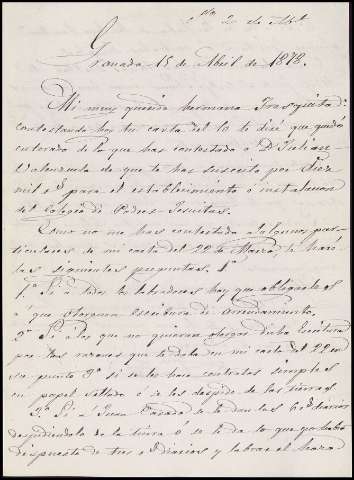 Nº 2 de Abl
Granada 15 de Abril de 1878.
Mi muy querida hermana Frasquita:
contestando hoy tu carta del 10 te diré que quedo
enterado de lo que has contestado á D. Julian
Valenzuela de que te has suscrito por Diez
mil rs para el establecimiento ó instalacion
del Colegio de Padres Jesuitas.
Como no me has contestado algunos par-
ticulares de mi carta del 22 de Marzo, te haré
las siguientes preguntas.
1ª Si á todos los labradores hay que obligarles
á que otorguen escritura de arrendamiento.
2ª Si á los que no quieran otorgar dicha Escritura
por las razones que te daba en mi carta del 22 en
su punto 3º si se les hace contratos simples
en papel sellado ó se les despide de las tierras
3ª Si á Juan Casado se le dan los 6 rs diarios
despidiendolo de la tierra ó se le da lo que yo habia
dispuesto de tres rs diarios y labrar el haza